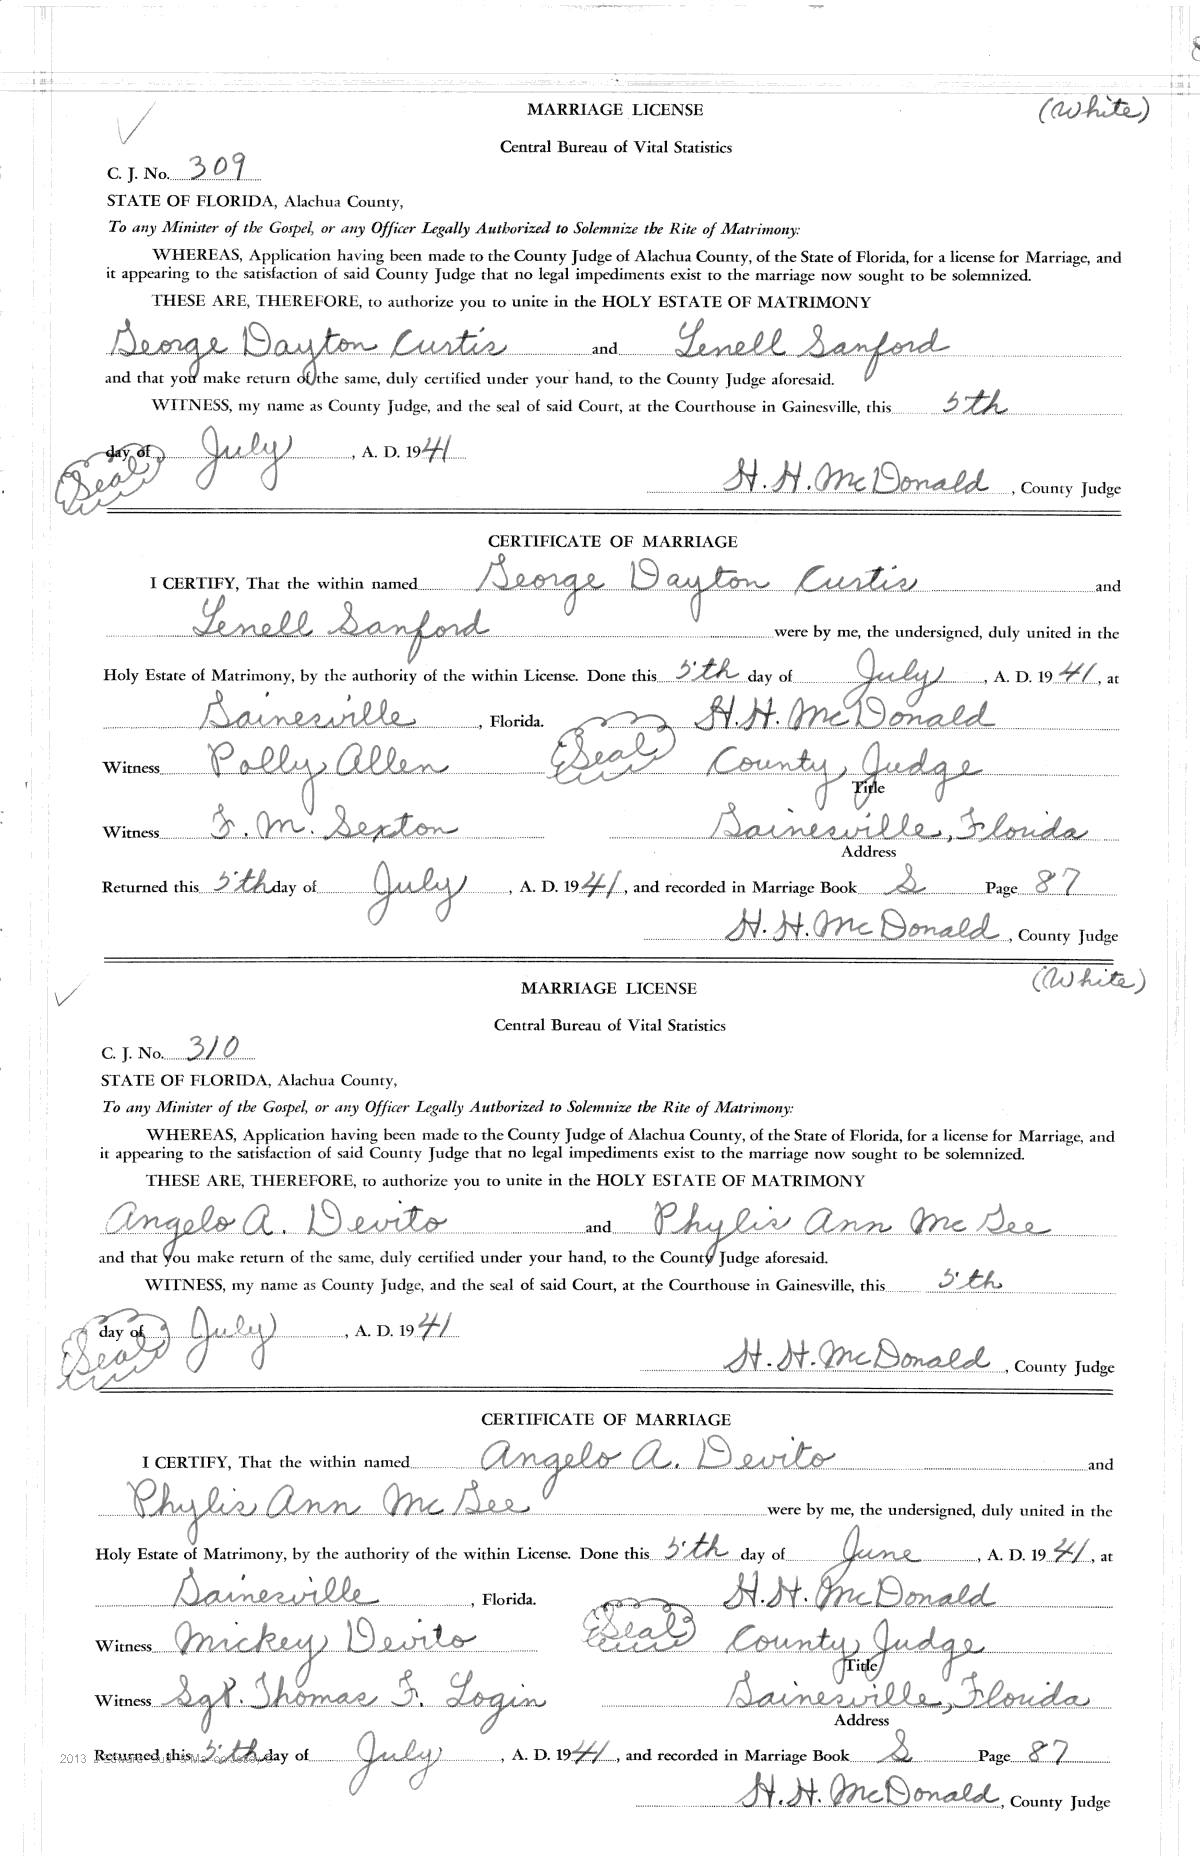 MARRIAGE LICENSE (White)
Central Bureau of Vital Statistics
C. J. No. 309
STATE OF FLORIDA, Alachua County,
To any Minister of the Gospel, or any Officer Legally Authorized to Solemnize the Rite of Matrimony:
WHEREAS, Application having been made to the County Judge of Alachua County, of the State of Florida, for a license for Marriage, and
it appearing to the satisfaction of said County Judge that no legal impediments exist to the marriage now sought to be solemnized.
THESE ARE, THEREFORE, to authorize you to unite in the HOLY ESTATE OF MATRIMONY
George Dayton Curtis and Lenell Sanford
and that you make return of the same, duly certified under your hand, to the County Judge aforesaid.
WITNESS, my name as County Judge, and the seal of said Court, at the Courthouse in Gainesville, this 5th
day of July, A. D. 1941
(Seal) H. H. McDonald, County Judge
CERTIFICATE OF MARRIAGE
I CERTIFY, That the within named George Dayton Curtis and
Lenell Sanford were by me, the undersigned, duly united in the
Holy Estate of Matrimony, by the authority of the within License. Done this 5th day of July, A. D. 1941, at
Gainesville, Florida. H. H. McDonald
Witness Polly Allen (Seal) County Judge
Title
Witness F. M. Sexton Gainesville, Florida
Address
Returned this 5th day of July, A. D. 1941, and recorded in Marriage Book S Page 87
H. H. McDonald, County Judge
MARRIAGE LICENSE (White)
Central Bureau of Vital Statistics
C. J. No. 310
STATE OF FLORIDA, Alachua County,
To any Minister of the Gospel, or any Officer Legally Authorized to Solemnize the Rite of Matrimony:
WHEREAS, Application having been made to the County Judge of Alachua County, of the State of Florida, for a license for Marriage, and
it appearing to the satisfaction of said County Judge that no legal impediments exist to the marriage now sought to be solemnized.
THESE ARE, THEREFORE, to authorize you to unite in the HOLY ESTATE OF MATRIMONY
Angelo A. Devito and Phylis Ann McGee
and that you make return of the same, duly certified under your hand, to the County Judge aforesaid.
WITNESS, my name as County Judge, and the seal of said Court, at the Courthouse in Gainesville, this 5th
day of July, A. D. 1941
(Seal) H. H. McDonald, County Judge
CERTIFICATE OF MARRIAGE
I CERTIFY, That the within named Angelo A. Devito and
Phylis Ann McGee were by me, the undersigned, duly united in the
Holy Estate of Matrimony, by the authority of the within License. Done this 5th day of June, A. D. 1941, at
Gainesville, Florida. H. H. McDonald
Witness Mickey Devito (Seal) County Judge
Title
Witness Sgt. Thomas F. Login Gainesville, Florida
Address
2013 Returned this 5th day of July, A. D. 1941, and recorded in Marriage Book S Page 87
H. H. McDonald, County Judge